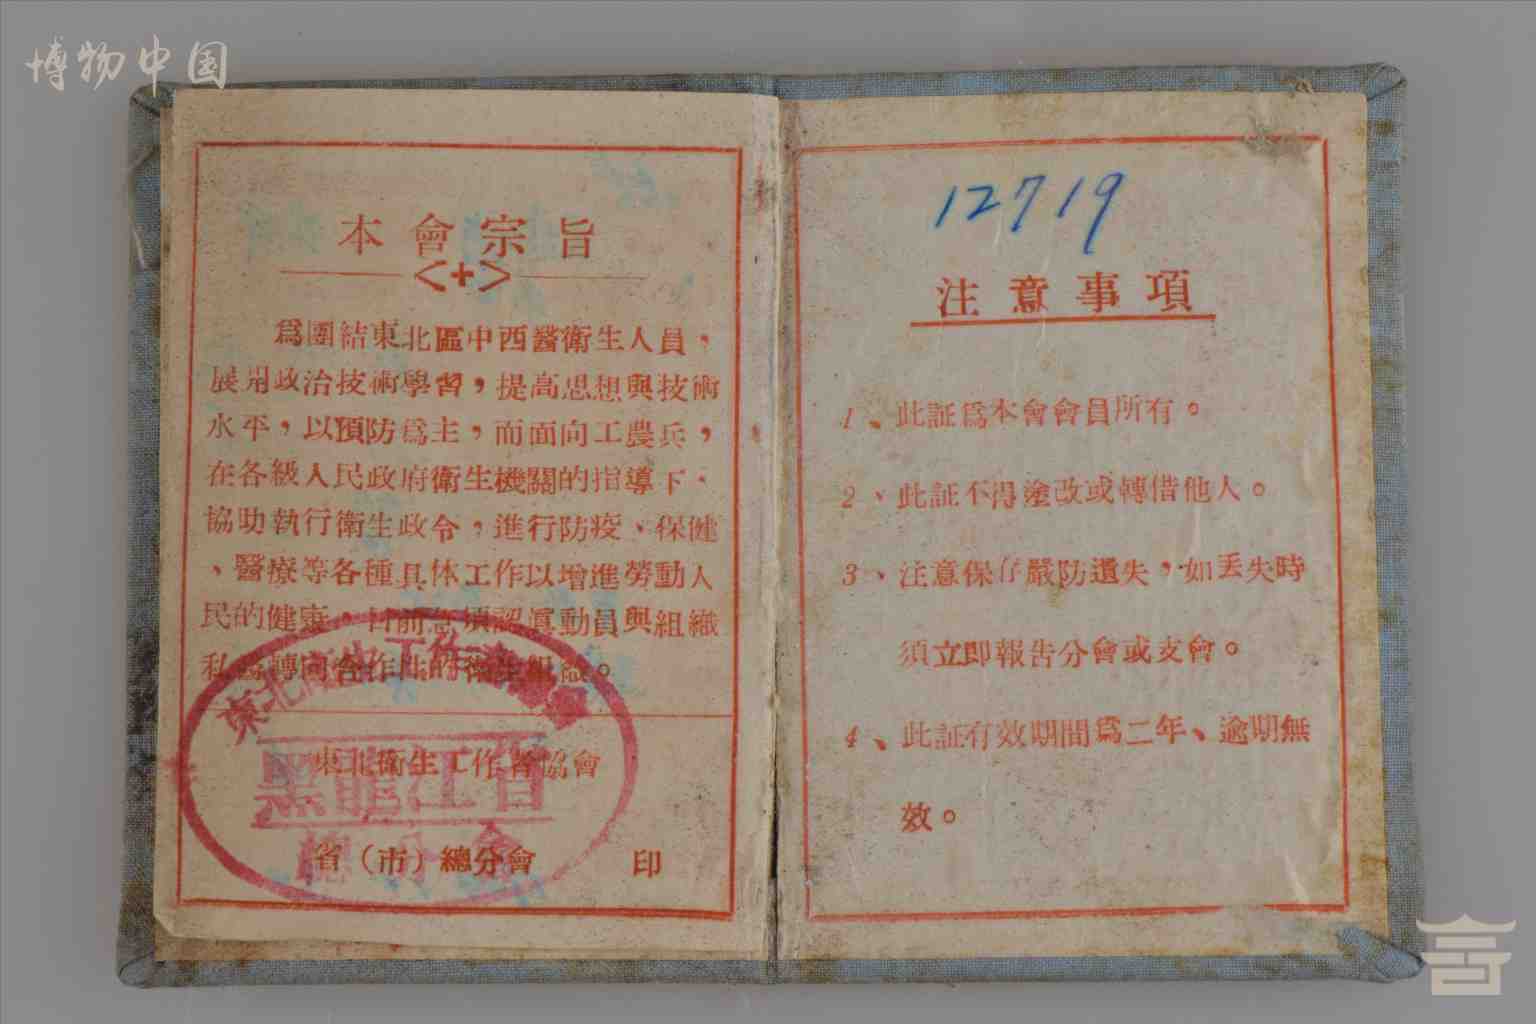 博物中国
本會宗旨
<+>
爲團結東北區中西醫衛生人員，
展開政治技術學習，提高思想與技術
水平，以預防爲主，而面向工農兵，
在各級人民政府衛生機關的指導下，
協助執行衛生政令，進行防疫、保健
、醫療等各種具体工作以增進勞動人
民的健康，目前急須認眞動員與組織
私醫轉向合作性的衛生組織。
東北衛生工作者協會
黑龍江省
總分會
東北衛生工作者協會
省（市）總分會 印
12719
注意事項
1、此証爲本會會員所有。
2、此証不得塗改或轉借他人。
3、注意保存嚴防遺失，如丢失時
須立即報告分會或支會。
4、此証有效期間爲二年、逾期無
效。